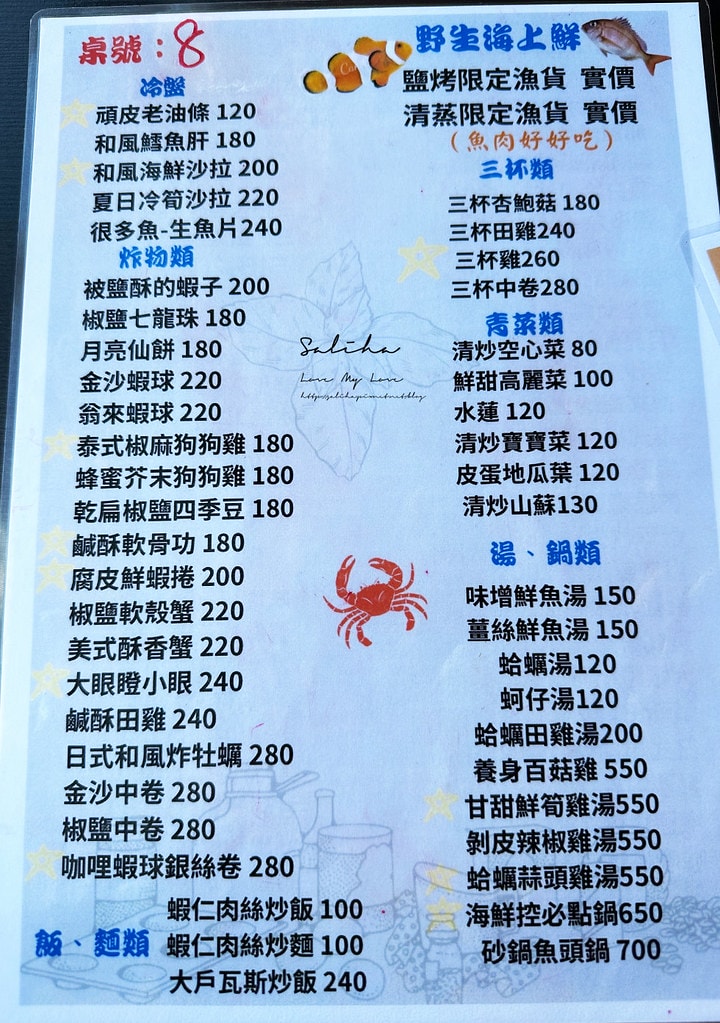 桌號：8
冷盤
頑皮老油條 120
和風鱈魚肝 180
和風海鮮沙拉 200
夏日冷筍沙拉 220
很多魚-生魚片240
炸物類
被鹽酥的蝦子 200
椒鹽七龍珠 180
月亮仙餅 180
金沙蝦球 220
翁來蝦球 220
泰式椒麻狗狗雞 180
蜂蜜芥末狗狗雞 180
乾扁椒鹽四季豆 180
鹹酥軟骨功 180
腐皮鮮蝦捲 200
椒鹽軟殼蟹 220
美式酥香蟹 220
大眼瞪小眼 240
鹹酥田雞 240
日式和風炸牡蠣 280
金沙中卷 280
椒鹽中卷 280
咖哩蝦球銀絲卷 280
飯、麵類
蝦仁肉絲炒飯 100
蝦仁肉絲炒麵 100
大戶瓦斯炒飯 240
野生海上鮮
鹽烤限定漁貨 實價
清蒸限定漁貨 實價
（魚肉好好吃）
三杯類
三杯杏鮑菇 180
三杯田雞240
三杯雞260
三杯中卷280
青菜類
清炒空心菜 80
鮮甜高麗菜 100
水蓮 120
清炒寶寶菜 120
皮蛋地瓜葉 120
清炒山蘇130
湯、鍋類
味增鮮魚湯 150
薑絲鮮魚湯 150
蛤蠣湯120
蚵仔湯120
蛤蠣田雞湯200
養身百菇雞 550
甘甜鮮筍雞湯550
剝皮辣椒雞湯550
蛤蠣蒜頭雞湯550
海鮮控必點鍋650
砂鍋魚頭鍋 700
Saliha
Love My Love